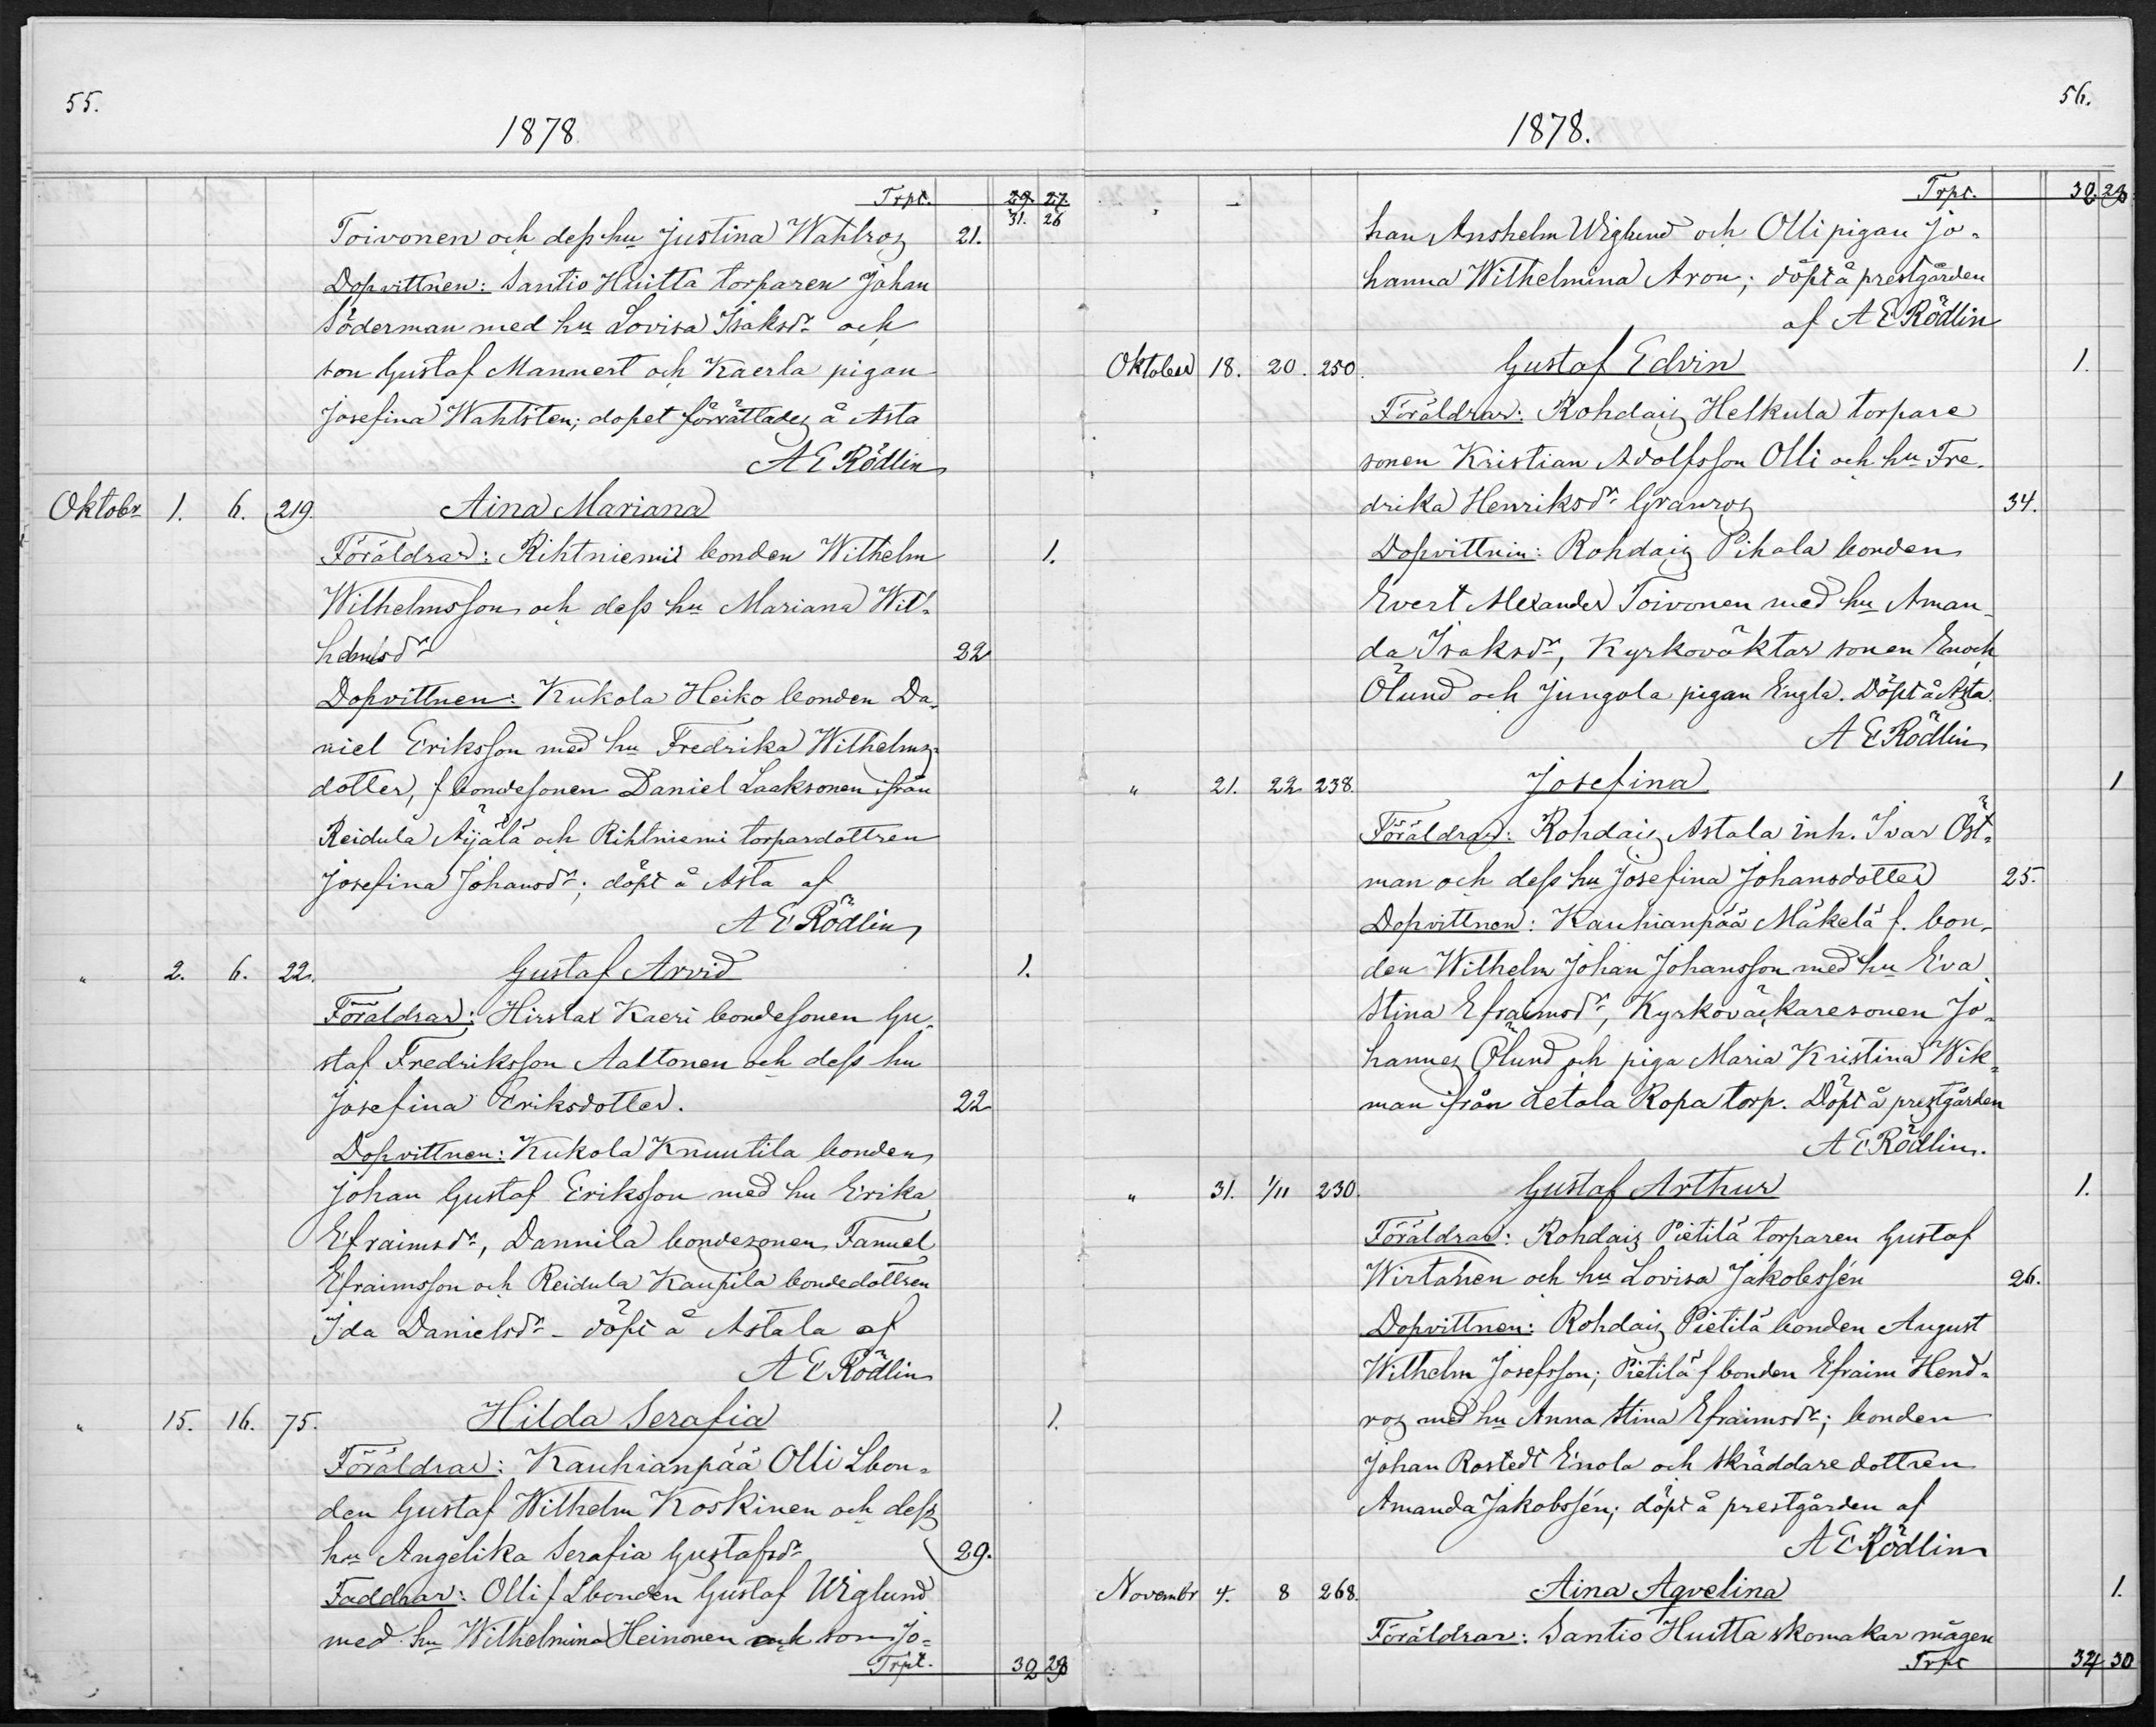 55.
1878
Trpt. 29 27
31. 26
Toivonen och dess hu Justina Wahlros 21.
Dopvittnen: Santio Huitta torparen Johan
Söderman med hu Lovisa Isaksdr och
son Gustaf Mannert och Kaerla pigan
Josefina Wahlsten; dopet förrättades å Asta
A E Rödlin
Oktobr 1. 6. 219. Aina Mariana
Föräldrar: Rihtniemi bonden Wilhelm 1.
Wilhelmsson och dess hu Mariana Wil-
helmsdr 22
Dopvittnen: Kukola Heiko bonden Da-
niel Eriksson med hu Fredrika Wilhelms-
dotter, f bondesonen Daniel Laaksonen från
Reidula Äijälä och Rihtniemi torpardottren
Josefina Johansdr; döpt å Asta af
A E Rödlin
" 2. 6. 22. Gustaf Arvid 1.
Föräldrar: Hirslax Kaeri bondesonen Gu-
staf Fredriksson Aaltonen och dess hu
Josefina Eriksdotter. 22
Dopvittnen: Kukola Knuutila bonden
Johan Gustaf Eriksson med hu Erika
Efraimsdr, Dannila bondesonen Fanuel
Efraimsson och Reidula Kaupila bondedottren
Ida Danielsdr - döpt å Astala af
A E Rödlin
" 15. 16. 75. Hilda Serafia 1.
Föräldrar: Kauhianpää Olli Lbon-
den Gustaf Wilhelm Koskinen och dess
hu Angelika Serafia Gustafsdr 29.
Faddrar: Olli f Lbonden Gustaf Wiglund
med hu Wilhelmina Heinonen och son Jo-
Trpt. 32 28
56.
1878.
Trpt. 32 28
han Anshelm Wiglund och Olli pigan Jo-
hanna Wilhelmina Aron; döpt å prestgården
af A E Rödlin
Oktober 18. 20. 250. Gustaf Edvin 1.
Föräldrar: Rohdais Helkula torpare
sonen Kristian Adolfsson Olli och hu Fre-
drika Henriksdr Granros 34.
Dopvittnin: Rohdais Pihala bonden
Evert Alexander Toivonen med hu Aman-
da Isaksdr, Kyrkoväktar sonen Enoch
Ölund och Jungola pigan Engla. Döpt å Asta.
A E Rödlin
" 21. 22 238. Josefina 1
Föräldrar: Rohdais Astala inh. Ivar Öst-
man och dess hu Josefina Johansdotter 25.
Dopvittnen: Kauhianpää Mäkelä f. bon-
den Wilhelm Johan Johansson med hu Eva
Stina Efraimsdr, Kyrkoväckaresonen Jo-
hannes Ölund och piga Maria Kristina Wik-
man från Letala Ropa torp. Döpt å prestgården
A E Rödlin.
" 31. 1/11 230. Gustaf Arthur 1.
Föräldrar: Rohdais Pietilä torparen Gustaf
Wirtanen och hu Lovisa Jakobssén 26.
Dopvittnen: Rohdais Pietilä bonden August
Wilhelm Josefsson; Pietilä f bonden Efraim Hend-
ros med hu Anna Stina Efraimsdr; bonden
Johan Rostedt Enola och skräddare dottren
Amanda Jakobssén; döpt å prestgården af
A E Rödlin
Novembr 4. 8 268. Aina Aqvelina 1.
Föräldrar: Santio Huitta skomakar mågen
Trpt 34 30